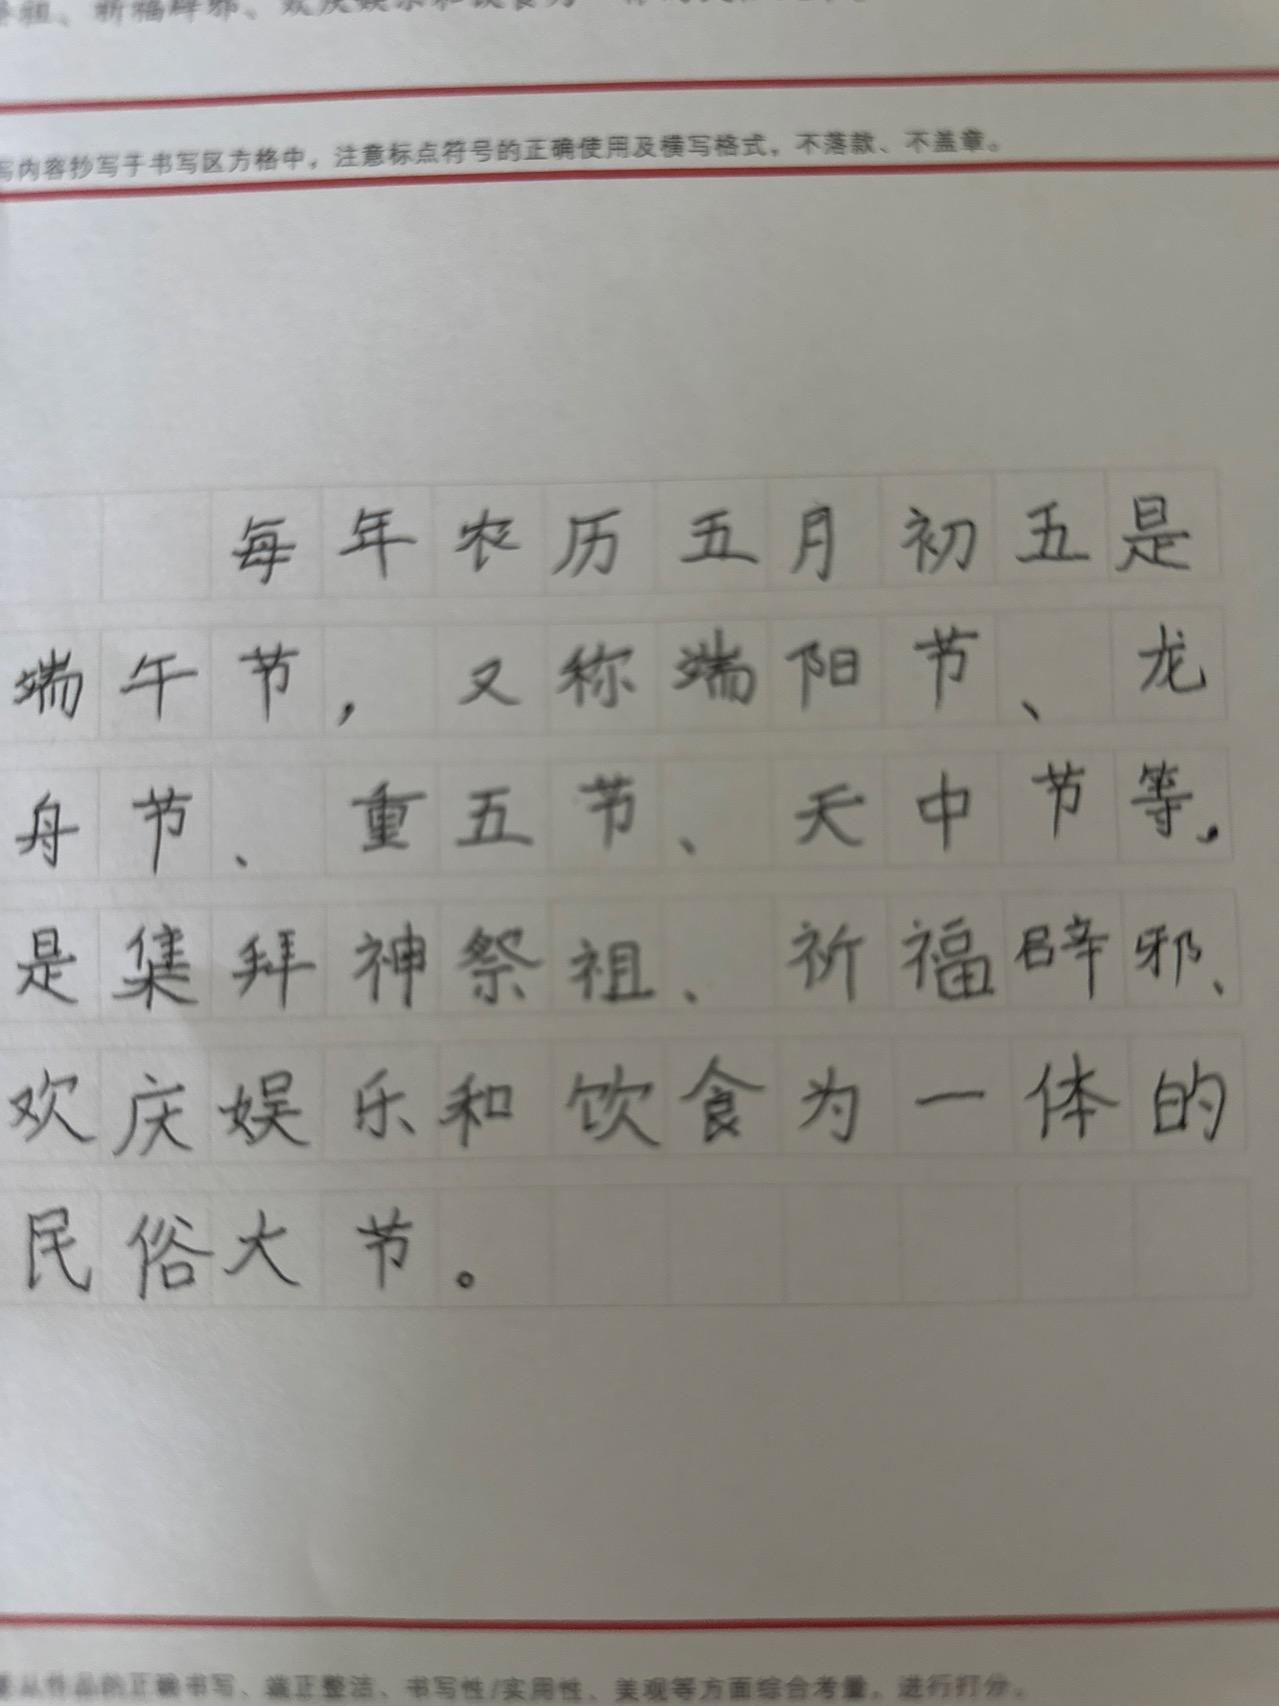 祖、祈福辟邪、欢庆娱乐和饮食为一体的
写内容抄写于书写区方格中，注意标点符号的正确使用及横写格式，不落款、不盖章。
每年农历五月初五是
端午节，又称端阳节、龙
舟节、重五节、天中节等，
是集拜神祭祖、祈福辟邪、
欢庆娱乐和饮食为一体的
民俗大节。
从作品的正确书写、端正整洁、书写性/实用性、美观等方面综合考量，进行打分。